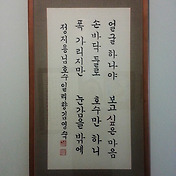 얼굴 하나야 보고 싶은 마음
손바닥 둘로 호수만 하니
폭 가리지만 눈감을 밖에
정지용님 호수